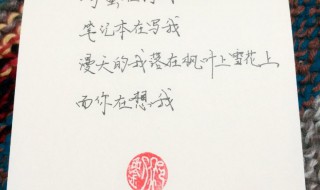 笔记本在写我
漫天的我落在枫叶上雪花上
而你在想我